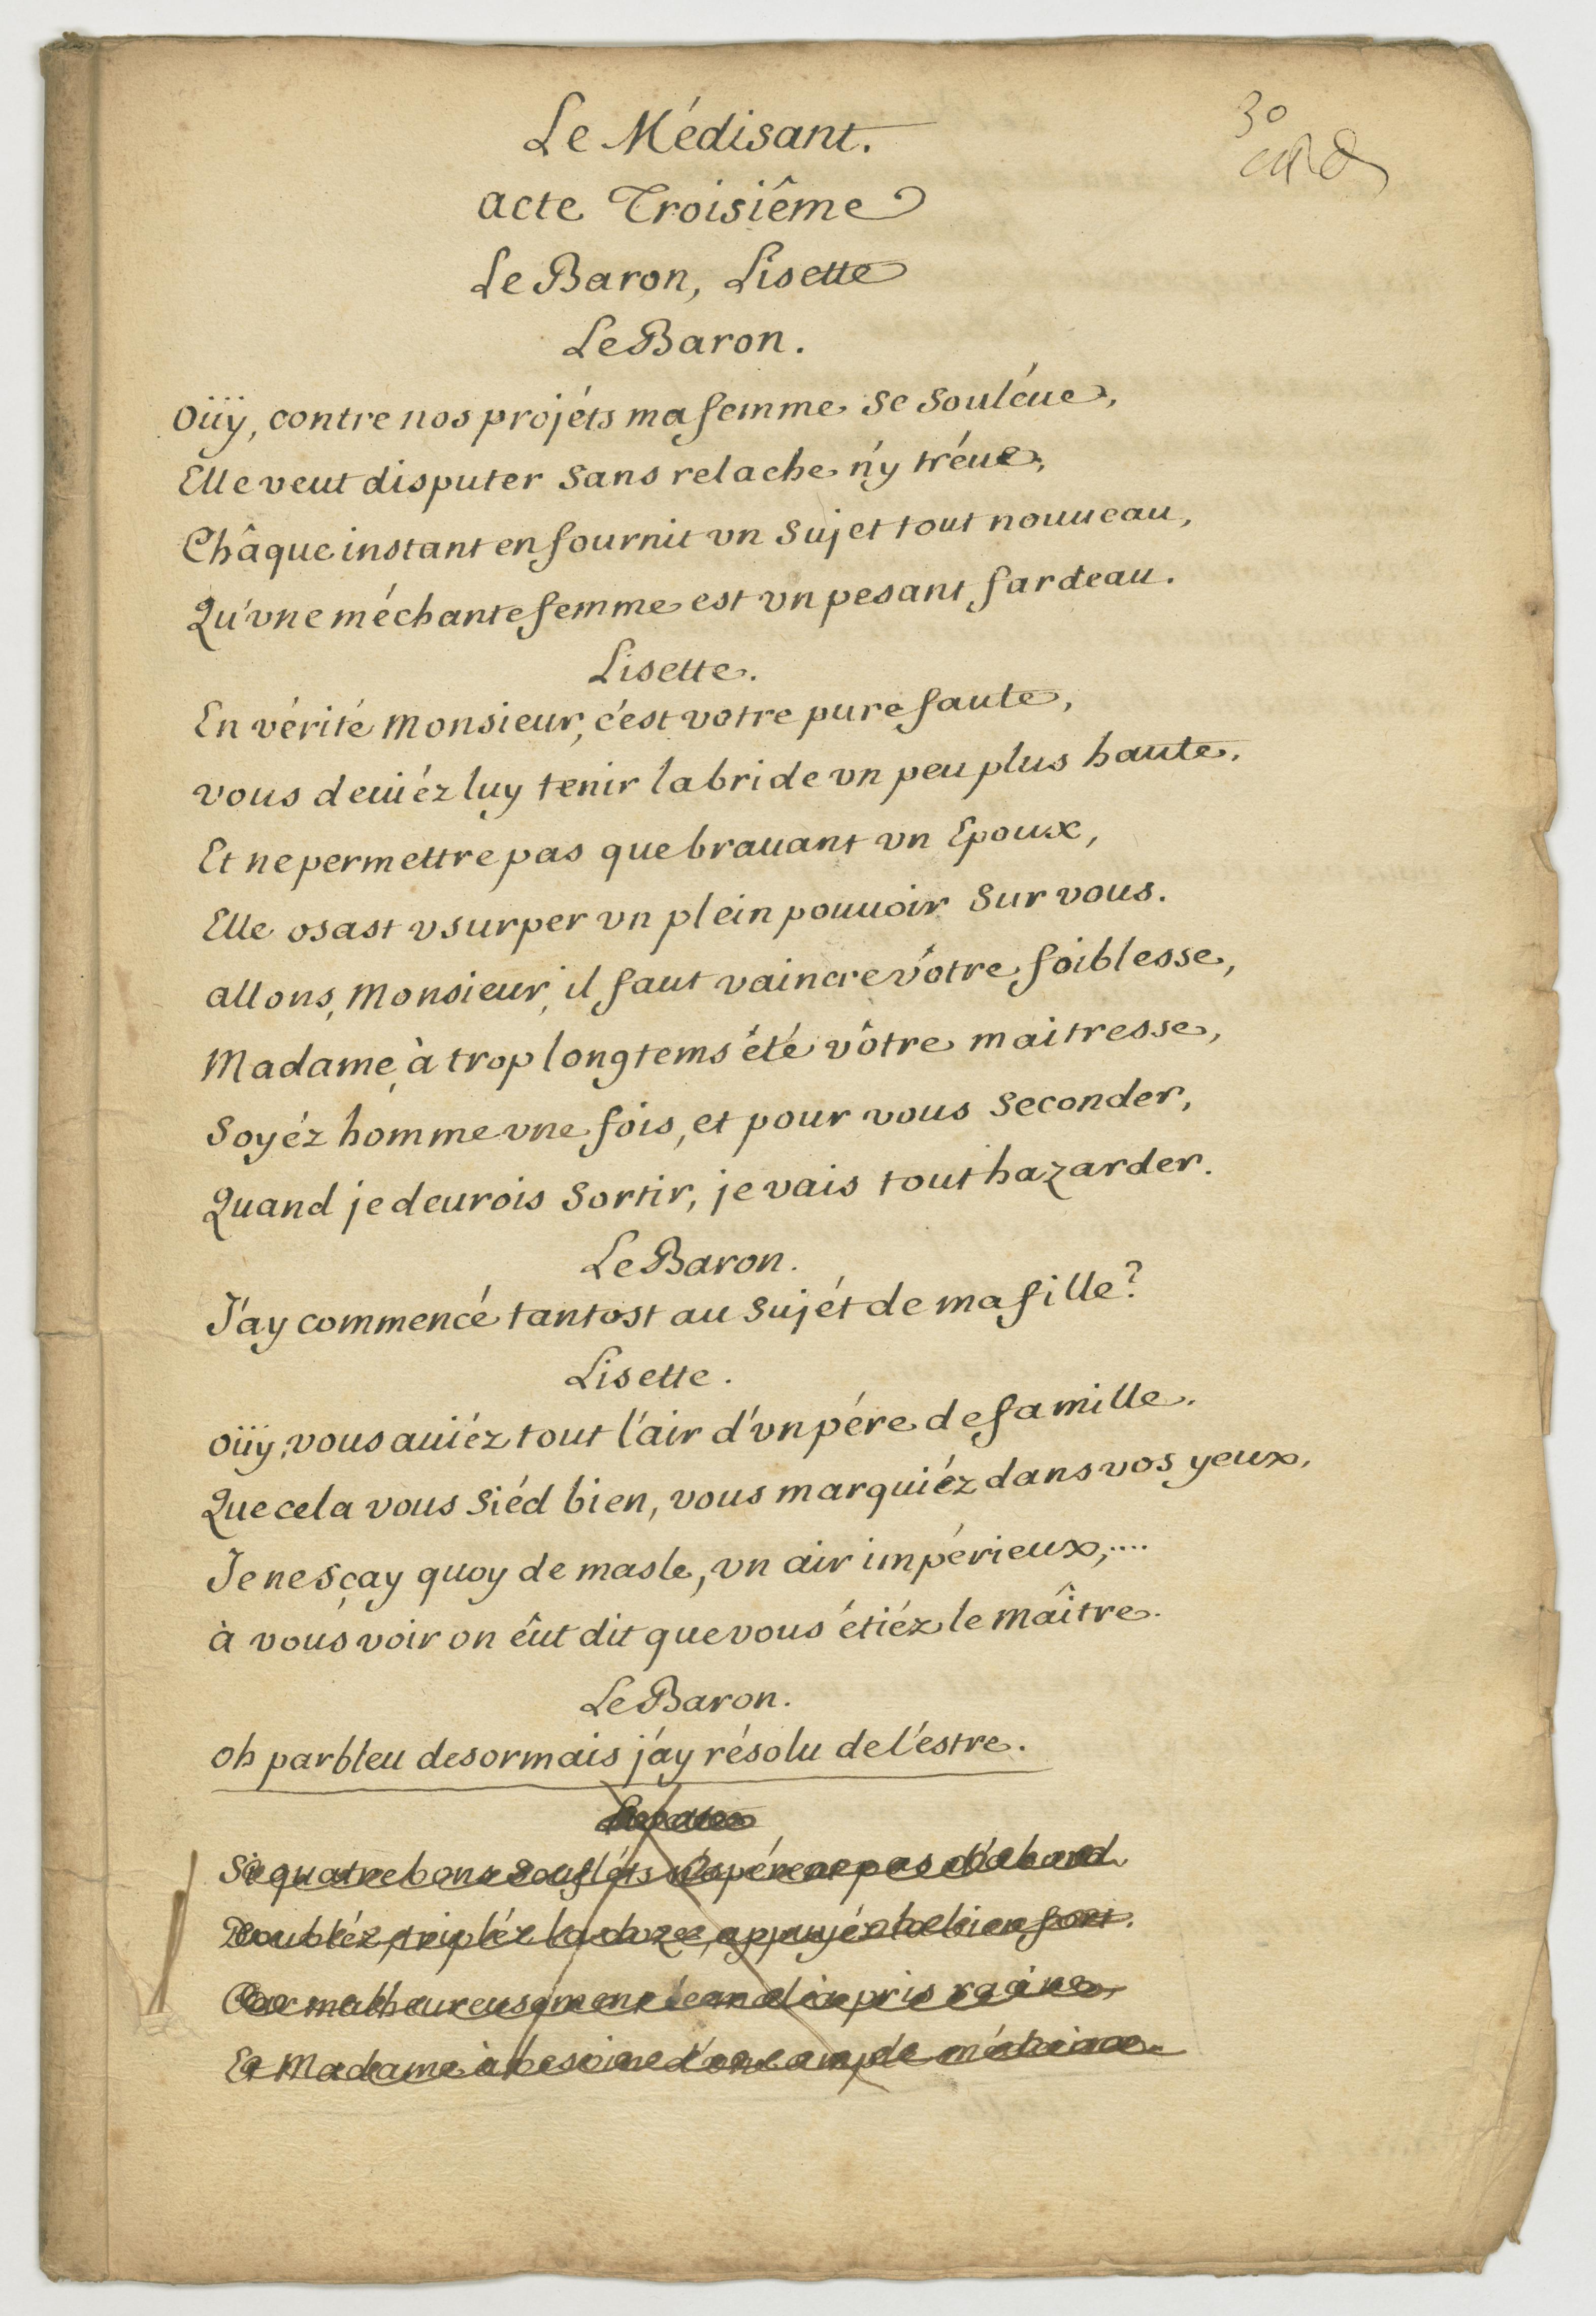 Le Médisant.
30
acte Troisiême
Le Baron, Lisette
Le Baron.
oüy, contre nos projéts ma femme se souléue,
Elle veut disputer sans relache n'y tréue,
Châque instant en fournit vn sujet tout nouueau,
Qu'vne méchante femme est vn pesant fardeau.
Lisette.
En vérité Monsieur, c'est votre pure faute,
vous deuiéz luy tenir la bride vn peu plus haute,
Et ne permettre pas que brauant vn Epoux,
Elle osast vsurper vn plein pouuoir sur vous.
allons, Monsieur, il faut vaincre vôtre foiblesse,
Madame à trop longtems été vôtre maitresse,
Soyéz homme vne fois, et pour vous seconder,
Quand je deurois sortir, je vais tout hazarder.
Le Baron.
J'ay commencé tantost au sujét de ma fille?
Lisette.
oüy, vous auiéz tout l'air d'vn pére de famille.
Que cela vous siéd bien, vous marquiéz dans vos yeux,
Je ne sçay quoy de masle, vn air impérieux,....
à vous voir on êut dit que vous étiéz le Maître.
Le Baron.
oh parbleu desormais j'ay résolu de l'estre.
Si quatre bons souffléts n'opérent pas d'abord
Doubléz, tripléz la doze, appuyéz bien fort.
Car malheureusement le mal à pris racine,
Et Madame à besoin d'vne ample médecine.